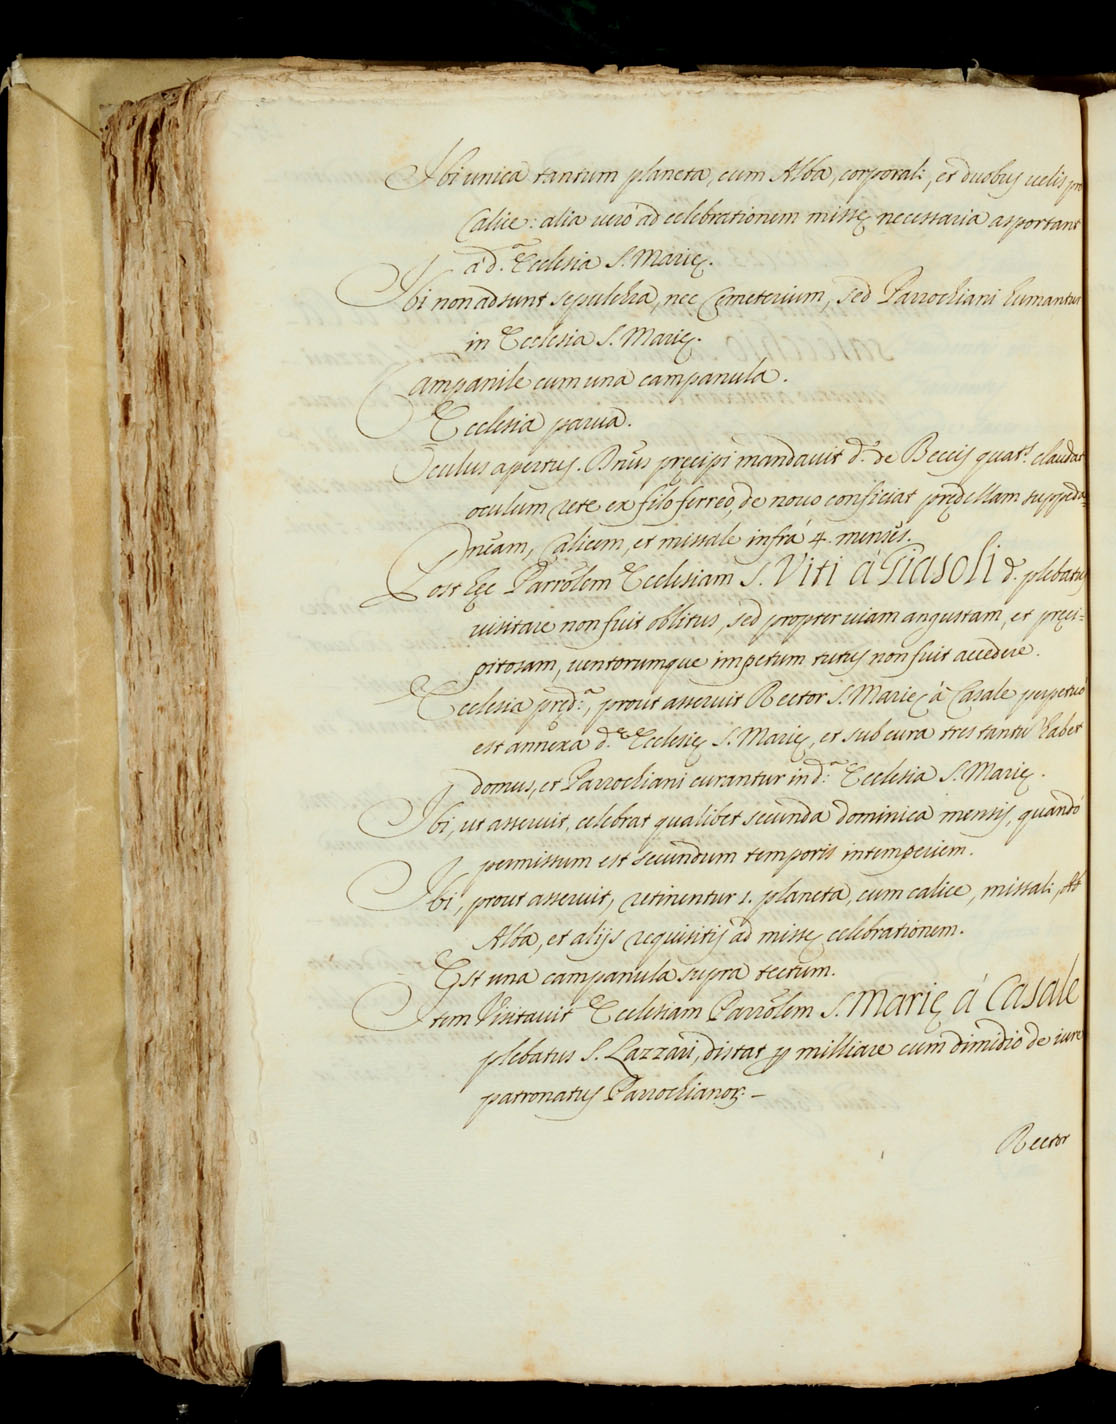 Ibi unica tantum planeta, cum Alba, corporali, et duobus uelis pro
Calice: alia uero ad celebrationem missę necessaria asportant
à d.ª Ecclesia S. Marię.
Ibi non adsunt sepulchra, nec Cemeterium, sed Parrochiani humantur
in Ecclesia S. Marię.
Campanile cum una campanula.
Ecclesia parua.
Oculus apertus. D. precipi mandauit d. de Beccis quat.s claudat
oculum rete ex filo ferreo, de nouo conficiat prędellam suppeda=
neam, Calicem, et missale infrà 4. menses.
Post hęc Parrõlem Ecclesiam S. Viti à d. plebatus
uisitare non fuit oblitus, sed propter uiam angustam, et pręci=
pitosam, uentorumque impetum tutus non fuit accedere.
Ecclesia pręd.ª, prout asseruit Rector S. Marię à Casale perpetuò
est annexa d.ę Ecclesię S. Marię, et sub cura tres tantũ habet
domus, et Parrochiani curantur in d.ª Ecclesia S. Marię.
Ibi, ut asseruit, celebrat qualibet secunda dominica mensis, quandò
permissum est secundum temporis intemperiem.
Ibi, prout asseruit, retinentur 1. planeta, cum calice, missali,
Alba, et alijs requisitis ad missę celebrationem.
Est una campanula supra tectum.
Item Visitauit Ecclesiam Parrõlem S. Marię à Casale
plebatus S. Lazzari, distat p milliare cum dimidio de iure
patronatus Parrochianor. –
Rector